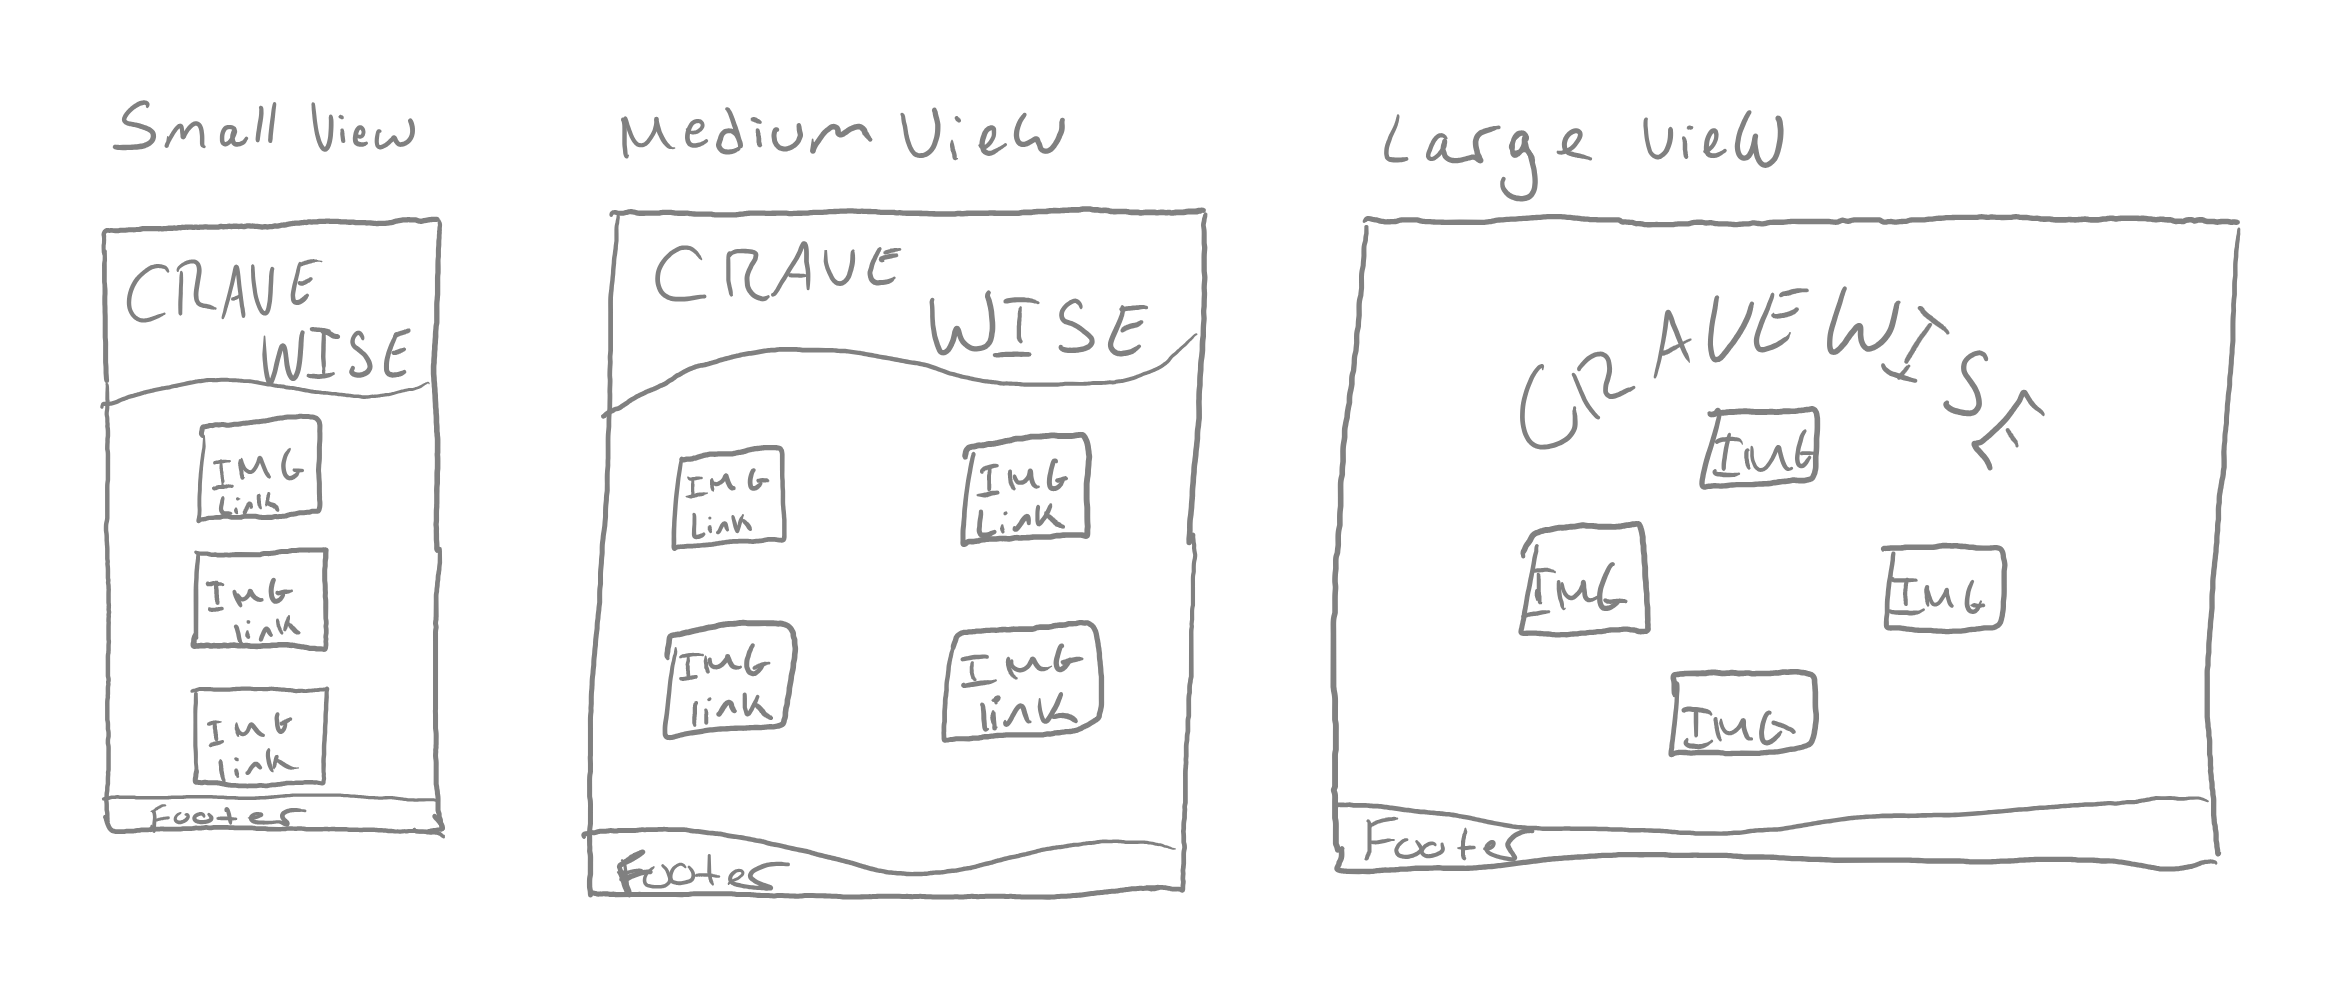 Small View
CRAVE
WISE
IMG
Link
IMG
link
IMG
link
Footer
Medium View
CRAVE
WISE
IMG
Link
IMG
Link
IMG
link
IMG
link
Footer
Large View
CRAVEWISE
IMG
IMG
IMG
IMG
Footer